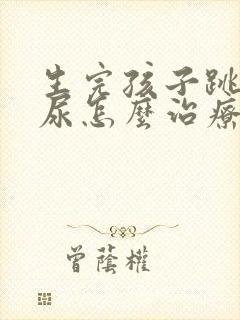 生完孩子跳
尿怎麼治療
曾蔭權